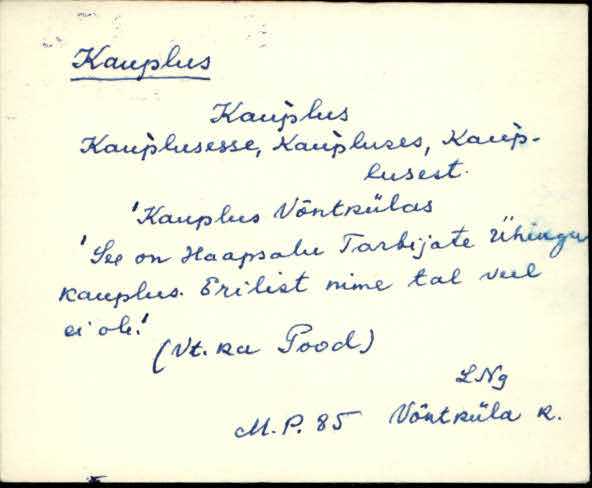 Kauplus
Kaup̀lus
Kaup̀lusesse, Kaup̀luses, Kaup̀-
lusest.
'Kauplus Võntkülas
'See on Haapsalu Tarbijate Ühingu
kauplus. Erilist nime tal veel
ei ole.'
(Vt. ka Pood)
LNg
M.P. 85 Võntküla k.